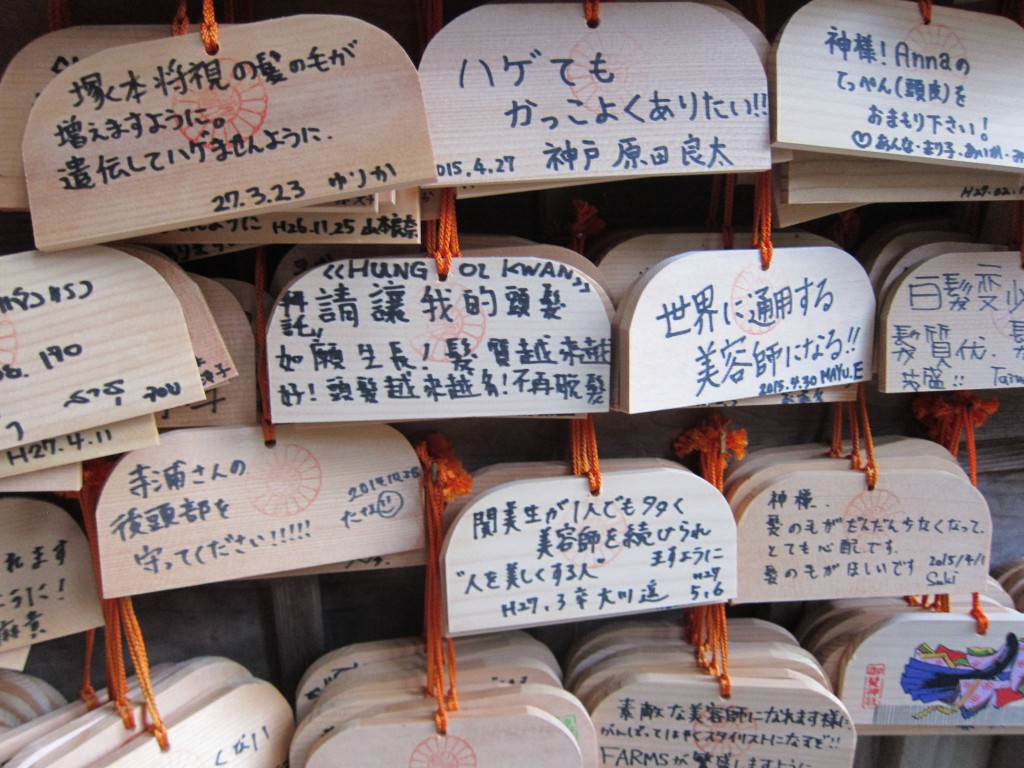 塚本将視の髪の毛が
増えますように。
遺伝してハゲませんように.
27.3.23 ゆりか
H26.11.25
ハゲても
かっこよくありたい!!
015.4.27 神戸 原田良太
神様!Annaの
てっぺん(頭皮)を
おまもり下さい!
♡あんな・まり子・あいか・み
190
H27.4.11
《HUNG OI KWAN》
拜託!! 請讓我的頭髮
如願生長!髮質越来越
好!頭髮越来越多!不再脱髮
世界に通用する
美容師になる!!
2015.4.30 MAYU.E
白髮变少
髮質优.
Taiw
れます
ように!
寺浦さんの
後頭部を
守ってください!!!!!
2014.10.28
関美生が1人でも多く
美容師を続けられ
ますように
"人を美しくする人"
H27.3卒 大川 遥
H27
5.6
神様.
髪の毛がだんだん少なくなって、
とても心配です.
髪の毛がほしいです
2015/4/1
Saki
素敵な美容師になれます様に
がんばってはやくスタイリストになるぞ!!
FARMSが繁盛しますように